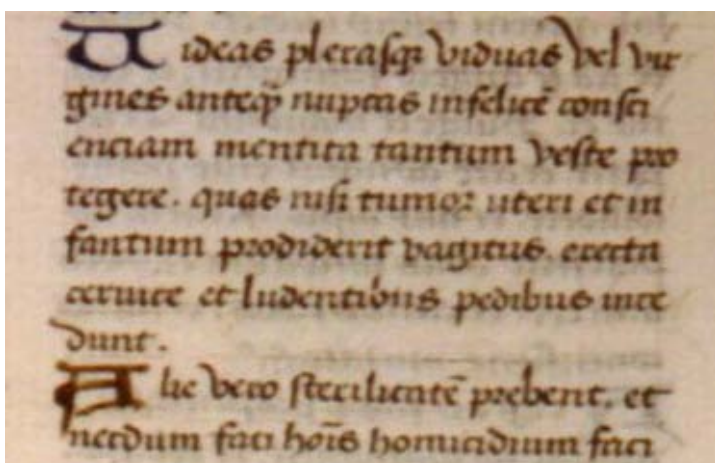 Uideas plerasqꝫ viduas vel vir
gines anteq̃ nuptas infelicẽ consci
enciam mentita tantum veste pro
tegere. quas nisi tumor uteri et in
fantium prodiderit vagitus. erecta
ceruice et ludentibus pedibus ince
dunt.
Alie vero sterilitatẽ prebent. et
necdum sati hoĩs homicidium faci